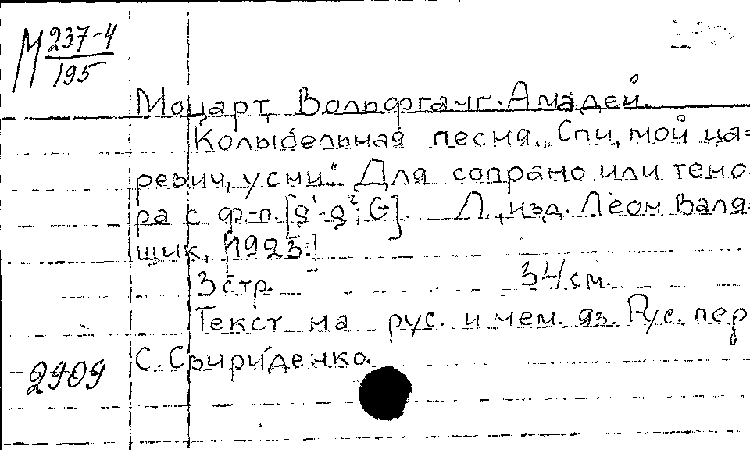 М 237-4
195
Моцарт, Вольфганг Амадей.
Колыбельная песня. „Спи, мой ца-
ревич, усни". Для сопрано или тено-
ра с ф-п. [g¹-g²; G]. Л., изд. Леон Валя-
щик, [1925.]
3 стр. 34 см.
Текст на рус. и нем. яз. Рус. пер.
2909 С. Свириденко.